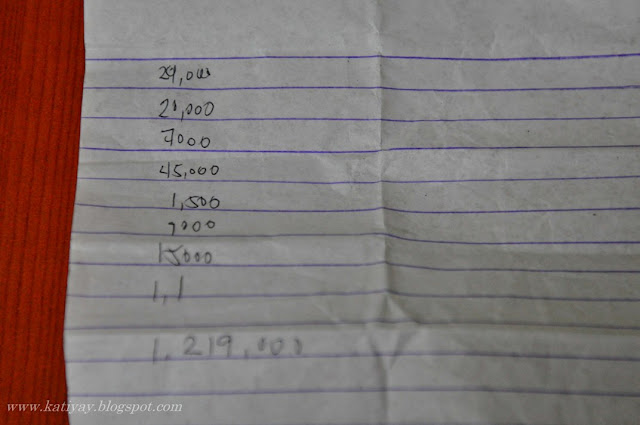 29,000
21,000
7000
45,000
1,500
15000
1,1
1,219,000
www.katiyay.blogspot.com